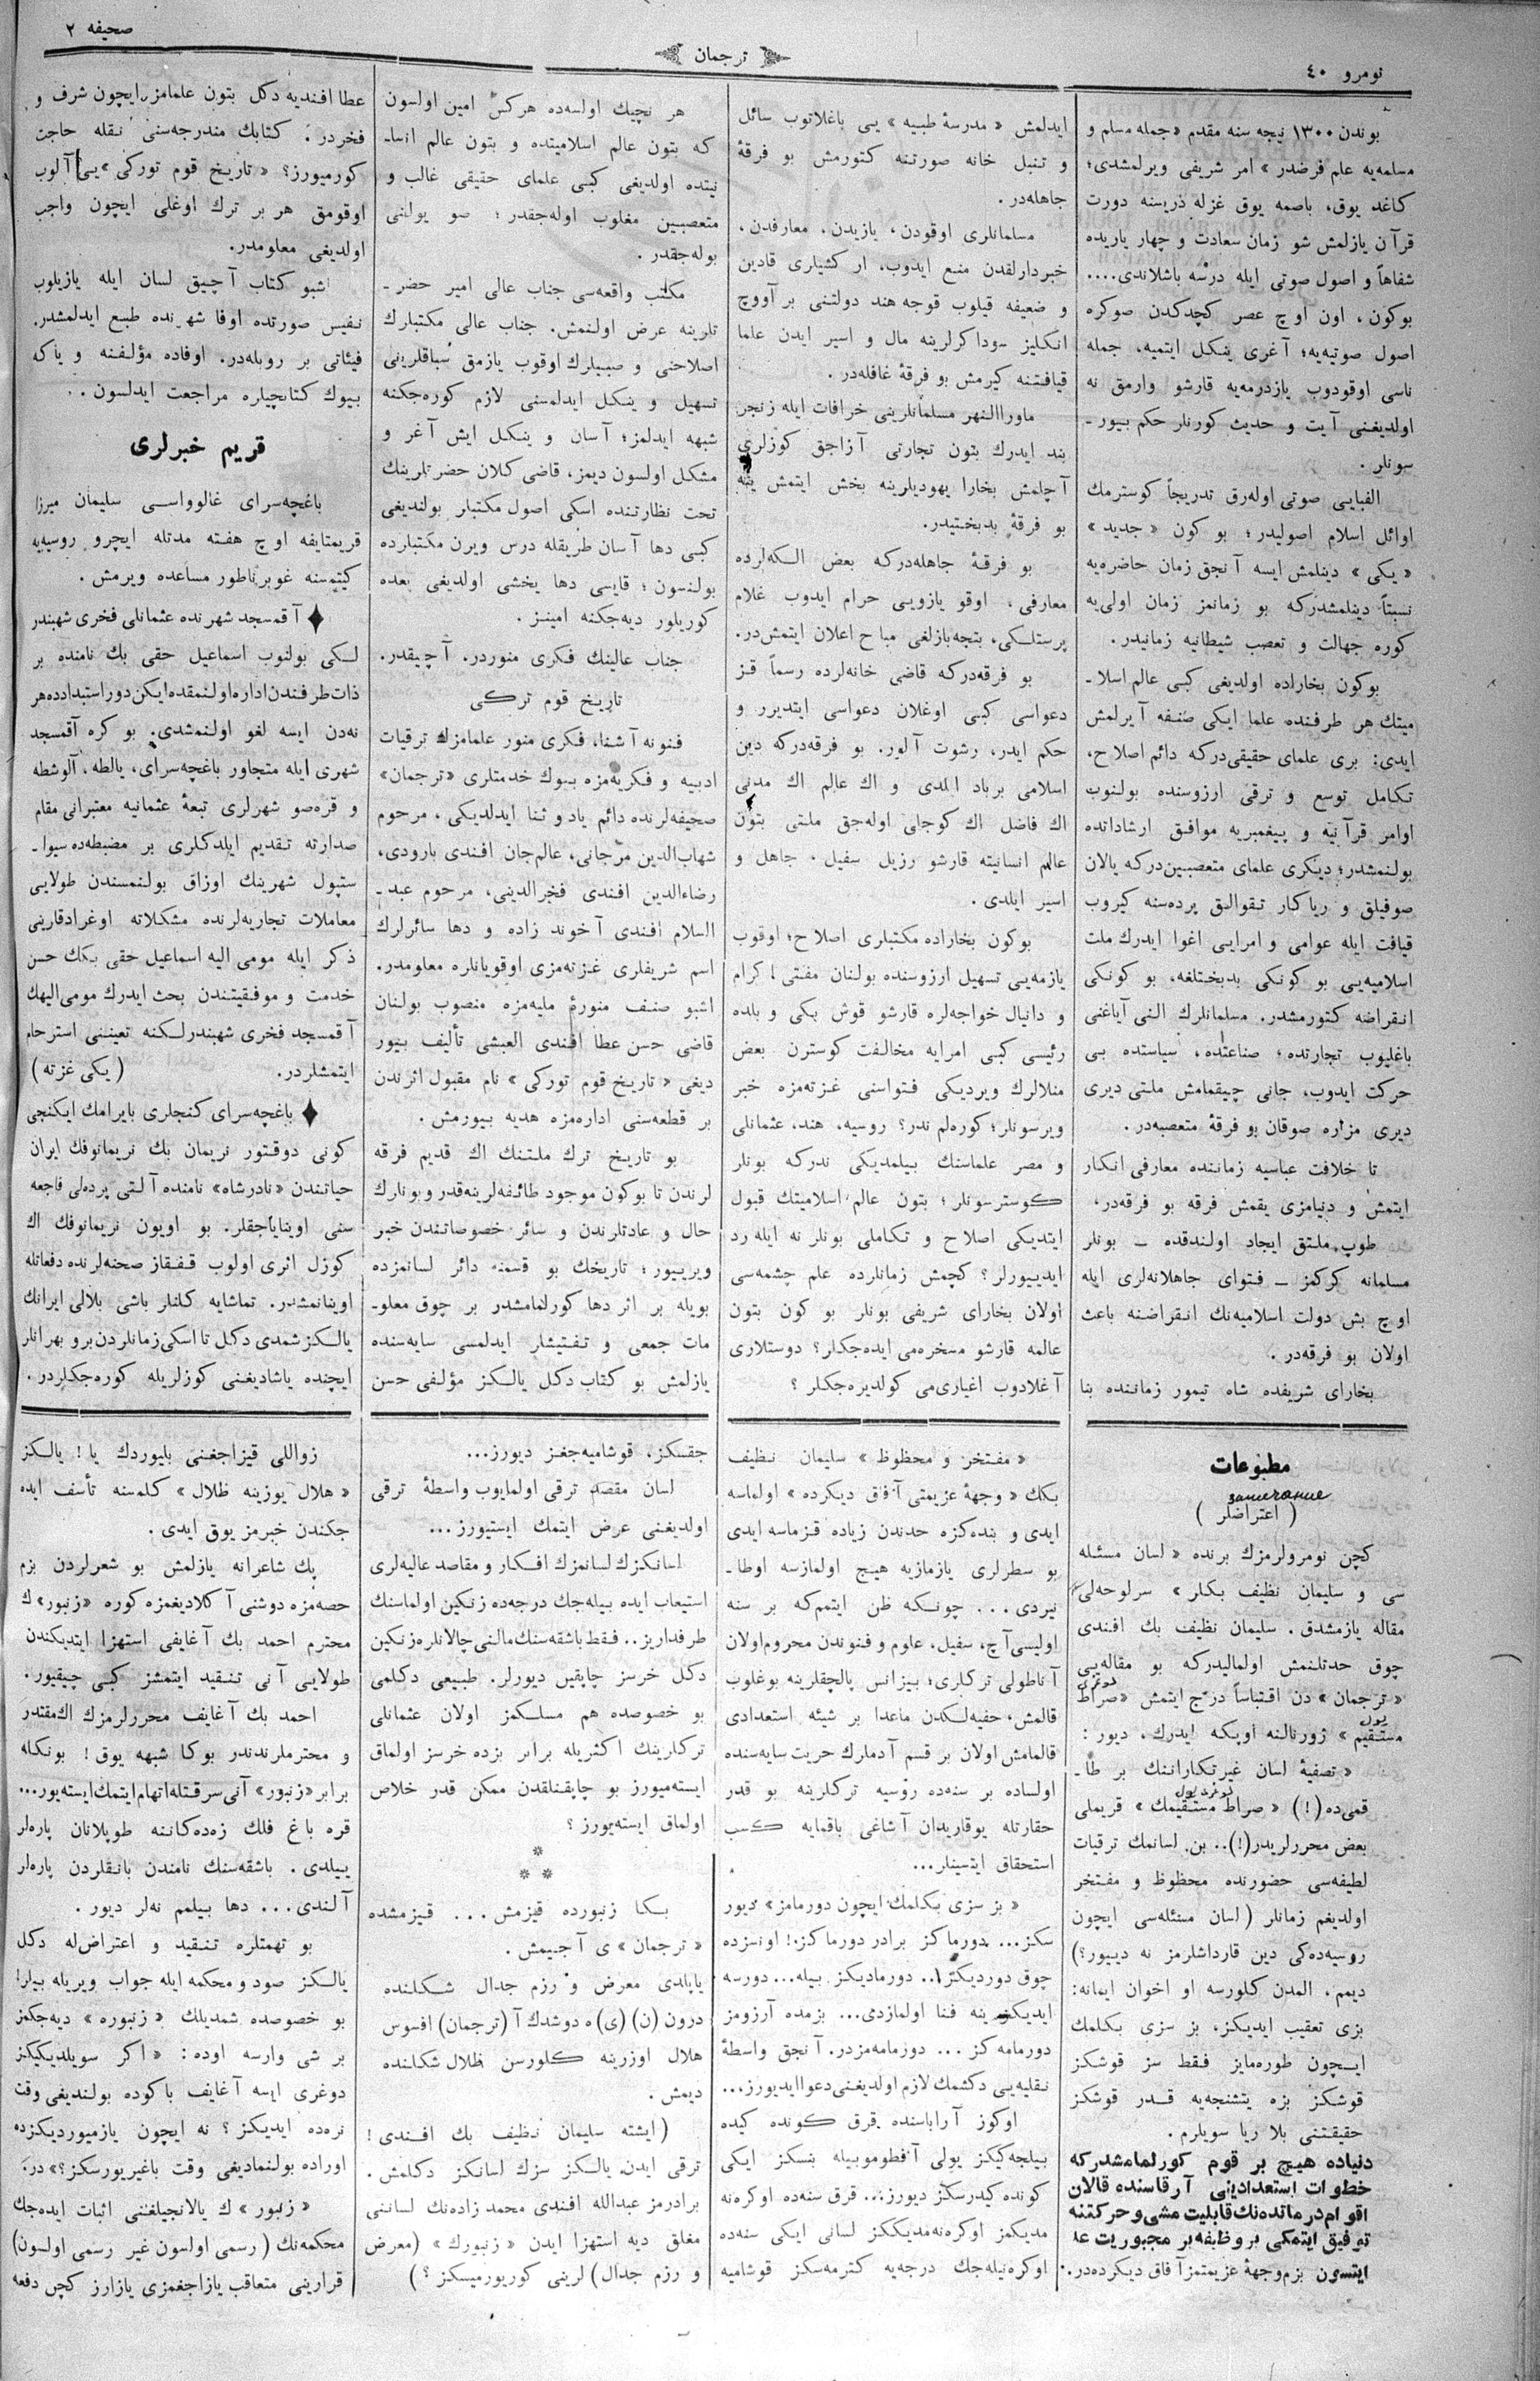 نومرو ٤٠
ترجمان
صحیفه ٢
بوندن ١٣٠٠ نیچه سنه مقدم «جمله مسلم و
مسلمه‌یه علم فرضدر» امر شریفی ویرلمشدی؛
كاغد یوق، باصمه یوق غزله ذریسنه دورت
قرآن یازلمش شو زمان سعادت و چهار یاریده
شفاهاً و اصول صوتی ایله درسه باشلاندی....
بوكون، اون اوچ عصر كچدكدن صوكره
اصول صوتیه‌یه؛ آغری ینكل ایتمیه، جمله
ناسی اوقودوب یازدرمه‌یه قارشو وارمق نه
اولدیغنی آیت و حدیث كورنلر حكم بیور-
سونلر.
الفبایی صوتی اوله‌رق تدریجاً كوسترمك
اوائل اسلام اصولیدر؛ بو كون «جدید»
«یكی» دینلمش ایسه آنجق زمان حاضره‌یه
نسبتاً دینلمشدركه بو زمانمز زمان اولی‌یه
كوره جهالت و تعصب شیطانیه زمانیدر.
بوكون بخاراده اولدیغی كبی عالم اسلا-
میتك هر طرفنده علما ایكی صنفه آیرلمش
ایدی: بری علمای حقیقی‌دركه دائم اصلاح،
تكامل توسع و ترقی ارزوسنده بولنوب
اوامر قرآنیه و پیغمبریه موافق ارشاداتده
بولنمشدر؛ دیكری علمای متعصبین‌دركه یالان
صوفیلق و ریاكار تقوالق پرده‌سنه كیروب
قیافت ایله عوامی و امرایی اغوا ایدرك ملت
اسلامیه‌یی بو كونكی بدبختلغه، بو كونكی
انقراضه كتورمشدر. مسلمانلرك النی آیاغنی
باغلیوب تجارتده؛ صناعتده، سیاستده بی
حركت ایدوب، جانی چیقمامش ملتی دیری
دیری مزاره صوقان بو فرقهٔ متعصبه‌در.
تا خلافت عباسیه زماننده معارفی انكار
ایتمش و دنیامزی یقمش فرقه بو فرقه‌در،
طوپ، ملتق ایجاد اولندقده — بونلر
مسلمانه كركمز — فتوای جاهلانه‌لری ایله
اوچ بش دولت اسلامیه‌نك انقراضنه باعث
اولان بو فرقه‌در.
بخارای شریفده شاه تیمور زماننده بنا
ایدلمش «مدرسهٔ طبیه» یی باغلاتوب سائل
و تنبل خانه صورتنه كتورمش بو فرقهٔ
جاهله‌در.
مسلمانلری اوقودن، یازیدن، معارفدن،
خبردارلقدن منع ایدوب، ار كشیلری قادین
و ضعیفه قیلوب قوجه هند دولتنی بر آووچ
انكلیز سوداكرلرینه مال و اسیر ایدن علما
قیافتنه كیرمش بو فرقهٔ غافله‌در.
ماوراالنهر مسلمانلرینی خرافات ایله زنجر
بند ایدرك بتون تجارتی آزاجق كوزلری
آچلمش بخارا یهودیلرینه بخش ایتمش ینه
بو فرقهٔ بدبختیدر.
بو فرقهٔ جاهله‌دركه بعض الكه‌لرده
معارفی، اوقو یازویی حرام ایدوب غلام
پرستلكی، بتچه‌بازلغی مباح اعلان ایتمش‌در.
بو فرقه‌دركه قاضی خانه‌لرده رسماً قز
دعواسی كبی اوغلان دعواسی ایتدیرر و
حكم ایدر، رشوت آلور. بو فرقه‌دركه دین
اسلامی برباد المدی و اك عالم اك مدنی
اك فاضل اك كوجلی اوله‌جق ملتی بتون
عالم انسانیته قارشو رزیل سفیل، جاهل و
اسیر ایلدی.
بوكون بخاراده مكتبلری اصلاح؛ اوقوب
یازمه‌یی تسهیل ارزوسنده بولنان مفتی اكرام
و دانیال خواجه‌لره قارشو قوش بكی و بلده
رئیسی كبی امرایه مخالفت كوسترن بعض
منلالرك ویردیكی فتواسنی غزته‌مزه خبر
ویرسونلر؛ كوره‌لم ندر؟ روسیه، هند، عثمانلی
و مصر علماسنك بیلمدیكی ندركه بونلر
كوسترسونلر؛ بتون عالم اسلامیتك قبول
ایتدیكی اصلاح و تكاملی بونلر نه ایله رد
ایدییورلر؟ كچمش زمانلرده علم چشمه‌سی
اولان بخارای شریفی بونلر بو كون بتون
عالمه قارشو مسخره‌می ایده‌جكلر؟ دوستلاری
آغلادوب اغیاری‌می كولدیره‌جكلر؟
هر نچیك اولسه‌ده هركس امین اولسون
كه بتون عالم اسلامیتده و بتون عالم انسا-
نیتده اولدیغی كبی علمای حقیقی غالب و
متعصبین مغلوب اوله‌جقدر؛ صو یولنی
بوله‌جقدر.
مكتب واقعه‌سی جناب عالی امیر حضر-
تلرینه عرض اولنمش. جناب عالی مكتبلرك
اصلاحنی و صبیلرك اوقوب یازمق سباقلرینی
تسهیل و ینكل ایدلمسنی لازم كوره‌جكنه
شبهه ایدلمز؛ آسان و ینكل ایش آغر و
مشكل اولسون دیمز، قاضی كلان حضرتلرینك
تحت نظارتنده اسكی اصول مكتبلر بولندیغی
كبی دها آسان طریقله درس ویرن مكتبلرده
بولنسون؛ قایسی دها یخشی اولدیغی بعده
كوریلور دیه‌جكنه امینز.
جناب عالینك فكری منوردر. آچیقدر.
تاریخ قوم تركی
فنونه آشنا، فكری منور علمامزك ترقیات
ادبیه و فكریه‌مزه بیوك خدمتلری «ترجمان»
صحیفه‌لرنده دائم یاد و ثنا ایدلدیكی، مرحوم
شهاب‌الدین مرجانی، عالم‌جان افندی بارودی،
رضاءالدین افندی فخرالدینی، مرحوم عبد-
السلام افندی آخوند زاده و دها سائرلرك
اسم شریفلری غزته‌مزی اوقویانلره معلومدر.
اشبو صنف منورهٔ ملیه‌مزه منصوب بولنان
قاضی حسن عطا افندی العبشی تألیف بیور
دیغی «تاریخ قوم توركی» نام مقبول اثرندن
بر قطعه‌سنی اداره‌مزه هدیه بیورمش.
بو تاریخ ترك ملتنك اك قدیم فرقه
لرندن تا بوكون موجود طائفه‌لرینه‌قدر و بونلرك
حال و عادتلرندن و سائر خصوصاتندن خبر
ویرییور؛ تاریخك بو قسمنه دائر لسانمزده
بویله بر اثر دها كورلمامشدر بر چوق معلو-
مات جمعی و تفتیشلر ایدلمسی سایه‌سنده
یازلمش بو كتاب دكل یالكز مؤلفی حسن
عطا افندیه دكل بتون علمامز ایچون شرف و
فخردر. كتابك مندرجه‌سنی نقله حاجت
كورمیورز؟ «تاریخ قوم توركی» یی آلوب
اوقومق هر بر ترك اوغلی ایچون واجب
اولدیغی معلومدر.
اشبو كتاب آچیق لسان ایله یازیلوب
نفیس صورتده اوفا شهرنده طبع ایدلمشدر.
فیئاتی بر روبله‌در. اوفاده مؤلفنه و یاكه
بیوك كتابچیلره مراجعت ایدلسون.
قریم خبرلری
باغچه‌سرای غالوواسی سلیمان میرزا
قریمتایفه اوچ هفته مدتله ایچرو روسیه‌یه
كیتمسنه غوبرناطور مساعده ویرمش.
♦ آقمسجد شهرنده عثمانلی فخری شهبندر
لكی بولنوب اسماعیل حقی بك نامنده بر
ذات طرفندن اداره اولنمقده ایكن دور استبدادده هر
نه‌دن ایسه لغو اولنمشدی. بو كره آقمسجد
شهری ایله متجاور باغچه‌سرای، یالطه، آلوشطه
و قره‌صو شهرلری تبعهٔ عثمانیه معتبرانی مقام
صدارته تقدیم ایلدكلری بر مضبطه‌ده سیوا-
ستپول شهرینك اوزاق بولنمسندن طولایی
معاملات تجاریه‌لرنده مشكلاته اوغرادقارینی
ذكر ایله مومی الیه اسماعیل حقی بكك حسن
خدمت و موفقیتندن بحث ایدرك مومی‌الیهك
آقمسجد فخری شهبندرلكنه تعیینی استرحام
ایتمشلردر. (یكی غزته)
♦ باغچه‌سرای كنجلری بایرامك ایكنجی
كونی دوقتور نریمان بك نریمانوفك ایران
حیاتندن «نادرشاه» نامنده آلتی پرده‌لی فاجعه
سنی اویناياجقلر. بو اویون نریمانوفك اك
كوزل اثری اولوب قفقاز صحنه‌لرنده دفعاتله
اوینانمشدر. تماشایه كلنلر باشی بلالی ایرانك
یالكز شمدی دكل تا اسكی زمانلردن برو بهرانلر
ایچنده یاشادیغنی كوزلریله كوره‌جكلردر.
مطبوعات
замечание
(اعتراضلر)
كچن نومرولرمزك برنده «لسان مسئله
سی و سلیمان نظیف بكلر» سرلوحه‌لی
مقاله یازمشدق. سلیمان نظیف بك افندی
چوق حدتلنمش اولمالیدركه بو مقاله‌یی
«ترجمان» دن اقتباساً درج ایتمش «صراط
مستقیم» ژورنالنه اوپكه ایدرك، دیور:
«تصفیهٔ لسان غیرتكارانك بر طا-
قمی‌ده (!) «صراط مستقیمك» قریملی
بعض محررلریدر(!).. بن. لسانمك ترقیات
لطیفه‌سی حضورنده محظوظ و مفتخر
اولدیغم زمانلر (لسان مسئله‌سی ایچون
روسیه‌ده‌كی دین قارداشلرمز نه دییور؟)
دیمم، المدن كلورسه او اخوان ایمانه:
بزی تعقیب ایدیكز، بز سزی بكلمك
ایچون طوره‌مایز فقط سز قوشكز
قوشكز بزه یتشنجه‌یه قدر قوشكز
حقیقتنی بلا ریا سویلرم.
دنیاده هیچ بر قوم كورلمامشدركه
خطوات استعدادینی آرقاسنده قالان
اقوام درمانده‌نك قابلیت مشی و حركتنه
توفیق ایتمكی بر وظیفه بر مجبوریت عد
ایتسون بزم وجههٔ عزیمتمز آفاق دیكرده‌در.
«مفتخر و محظوظ» سلیمان نظیف
بكك «وجههٔ عزیمتی آفاق دیكرده» اولماسه
ایدی و بنده‌كزه حدندن زیاده قزماسه ایدی
بو سطرلری یازمازیه هیچ اولمازسه اوطا-
نیردی... چونكه ظن ایتمم‌كه بر سنه
اولیسی آچ، سفیل، علوم و فنوندن محروم اولان
آناطولی تركلری؛ بیزانس پالچقلرینه بوغلوب
قالمش، حفیه‌لكدن ماعدا بر شیئه استعدادی
قالمامش اولان بر قسم آدملرك حریت سایه‌سنده
اولساده بر سنه‌ده روسیه تركلرینه بو قدر
حقارتله یوقاریدان آشاغی باقمایه كسب
استحقاق ایتسینلر...
«بز سزی بكلمك ایچون دورمامز» دیور
سكز... دورماكز برادر دورماكز! اوتسزده
چوق دوردیكز!.. دورمادیكز بیله... دورسه
ایدیكز ینه فنا اولمازدی... بزمده آرزومز
دورمامه‌كز... دوزمامه‌مزدر. آنجق واسطهٔ
نقلیه‌یی دكشمك لازم اولدیغنی دعوا ایدیورز...
اوكوز آراباسنده قرق كونده كیده
بیلجه‌كیكز یولی آفطوموبیله بنسكز ایكی
كونده كیدرسكز دیورز... قرق سنه‌ده اوكره‌نه
مدیكمز اوكره‌نه‌مدیككز لسانی ایكی سنه‌ده
اوكره‌نیله‌جك درجه‌یه كترمه‌سكز قوشامیه
جقسكز، قوشامیه‌جغز دیورز...
لسان مقصد ترقی اولمایوب واسطهٔ ترقی
اولدیغنی عرض ایتمك ایستیورز...
لسانكزك لسانمزك افكار و مقاصد عالیه‌لری
استیعاب ایده بیله‌جك درجه‌ده زنكین اولماسنك
طرفداریز.. فقط باشقه‌سنك مالنی چالانلره زنكین
دكل خرسز چاپقین دیورلر. طبیعی دكلمی
بو خصوصده هم مسلكمز اولان عثمانلی
تركلرینك اكثریله برابر بزده خرسز اولماق
ایسته‌میورز بو چاپقنلقدن ممكن قدر خلاص
اولماق ایسته‌یورز؟
* * *
بكا زنبورده قیزمش... قیزمشده
«ترجمان» ی آجیمش.
یاپلدی معرض و رزم جدال شكلنده
درون (ن) (ی) ه دوشدك آ (ترجمان) افسوس
هلال اوزرینه كلورسن ظلال شكلنده
دیمش.
(ایشته سلیمان نظیف بك افندی!
ترقی ایدن یالكز سزك لسانكز دكلمش.
برادرمز عبدالله افندی محمد زاده‌نك لساننی
مغلق دیه استهزا ایدن «زنبورك» (معرض
و رزم جدال) لرینی كوریورمیسكز؟)
زواللی قیزاجغنی بلیوردك یا! یالكز
«هلال یوزینه ظلال» كلمسنه تأسف ایده
جكندن خبرمز یوق ایدی.
پك شاعرانه یازلمش بو شعرلردن بزم
حصه‌مزه دوشنی آكلادیغمزه كوره «زنبور» ك
محترم احمد بك آغایفی استهزا ایتدیكندن
طولایی آنی تنقید ایتمشز كبی چیقیور.
احمد بك آغایف محررلرمزك اك مقتدر
و محترملرندندر بوكا شبهه یوق! بونكله
برابر «زنبور» آنی سرقتله اتهام ایتمك ایسته‌یور...
قره باغ فلك زده‌كانه طوپلانان پاره‌لر
ییلدی. باشقه‌سنك نامندن بانقلردن پاره‌لر
آلندی... دها بیلمم نه‌لر دیور.
بو تهمتلره تنقید و اعتراض‌له دكل
یالكز صود و محكمه ایله جواب ویریله بیلر!
بو خصوصده شمدیلك «زنبوره» دیه‌جكمز
بر شی وارسه اوده: «اكر سویلدیكیكز
دوغری ایسه آغایف باكوده بولندیغی وقت
نره‌ده ایدیكز؟ نه ایچون یازمیوردیكزده
اوراده بولنمادیغی وقت باغیریورسكز؟» در.
«زنبور» ك یالانجیلغنی اثبات ایده‌جك
محكمه‌نك (رسمی اولسون غیر رسمی اولسون)
قرارینی متعاقب یازاجغمزی یازارز كچن دفعه